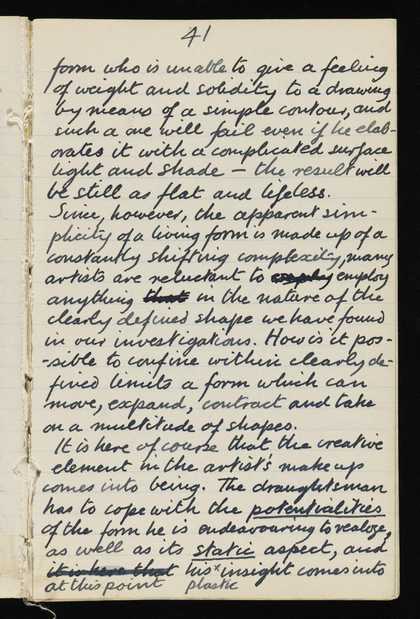 41
form who is unable to give a feeling
of weight and solidity to a drawing
by means of a simple contour, and
such a one will fail even if he elab-
orates it with a complicated surface
light and shade — the result will
be still as flat and lifeless.
Since, however, the apparent sim-
plicity of a living form is made up of a
constantly shifting complexity, many
artists are reluctant to employ
anything that in the nature of the
clearly defined shape we have found
in our investigations. How is it pos-
-sible to confine within clearly de-
fined limits a form which can
move, expand, contract and take
on a multitude of shapes.
It is here of course that the creative
element in the artist's make up
comes into being. The draughtsman
has to cope with the potentialities
of the form he is endeavouring to realize,
as well as its static aspect, and
it is here that his x insight comes into
at this point plastic